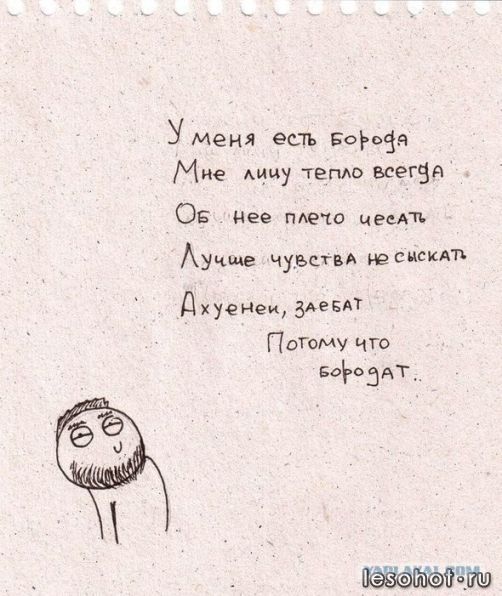 У меня есть борода
Мне лицу тепло всегда
Об нее плечо чесать
Лучше чувства не сыскать
Ахуенен, заебат
Потому что
бородат..
lesohot.ru